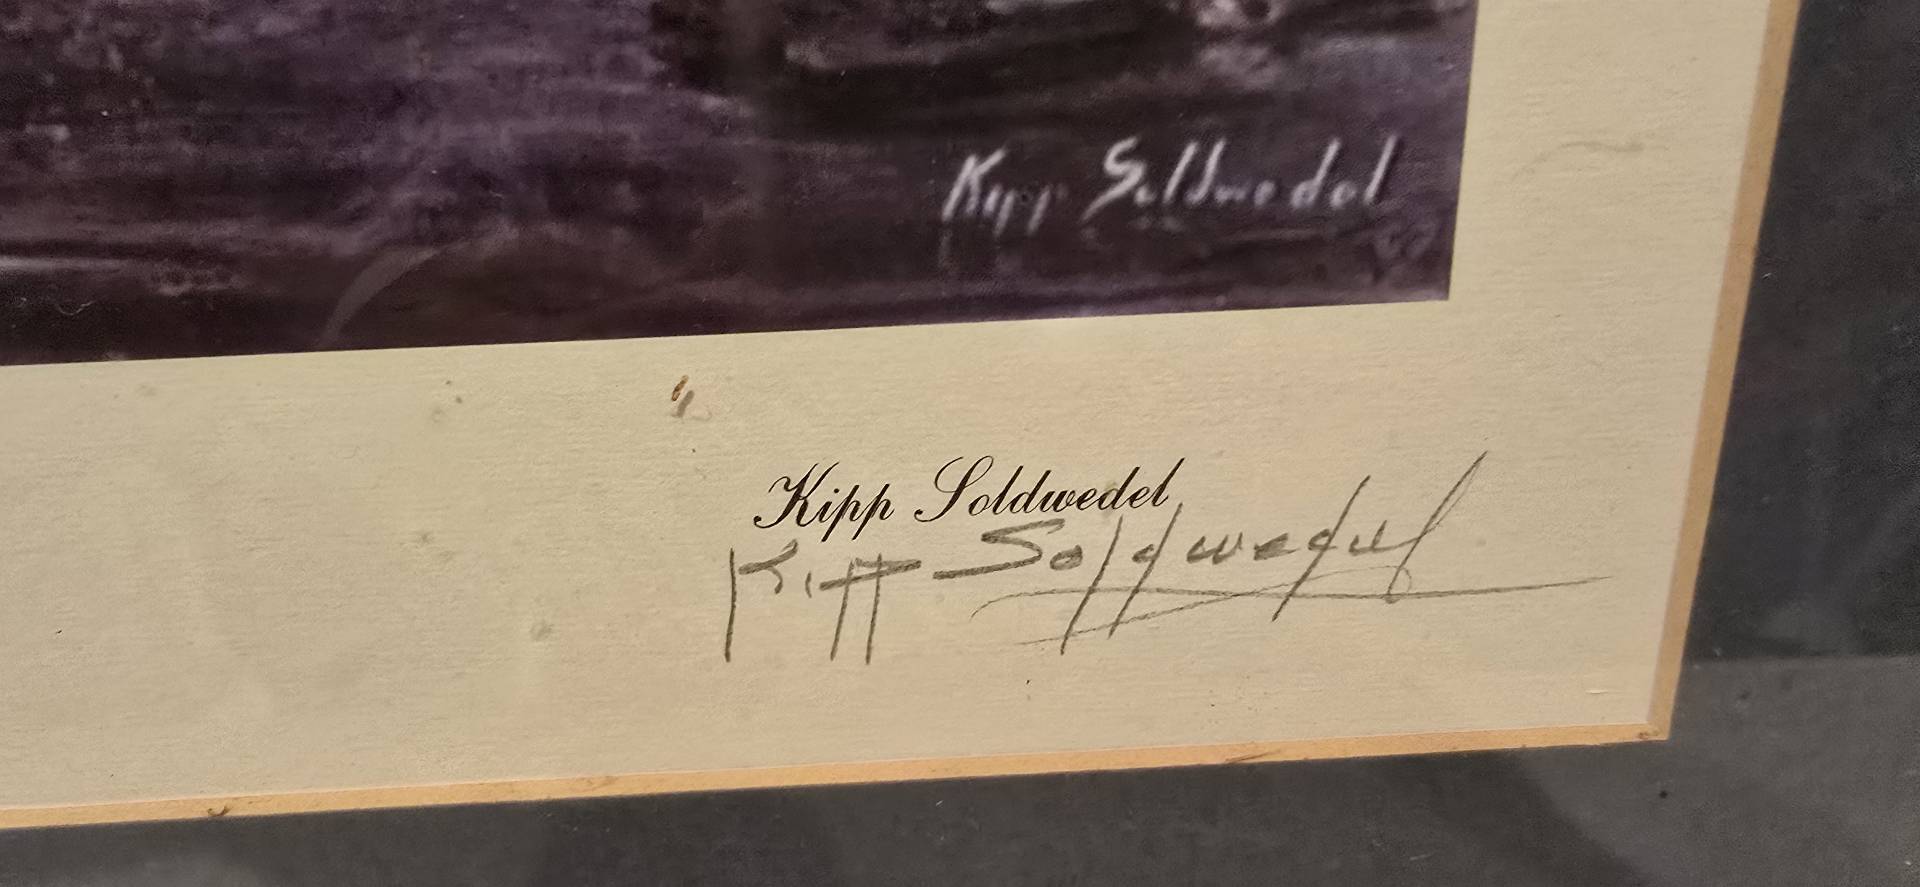 Kipp Soldwedel
Kipp Soldwedel
Kipp Soldwedel